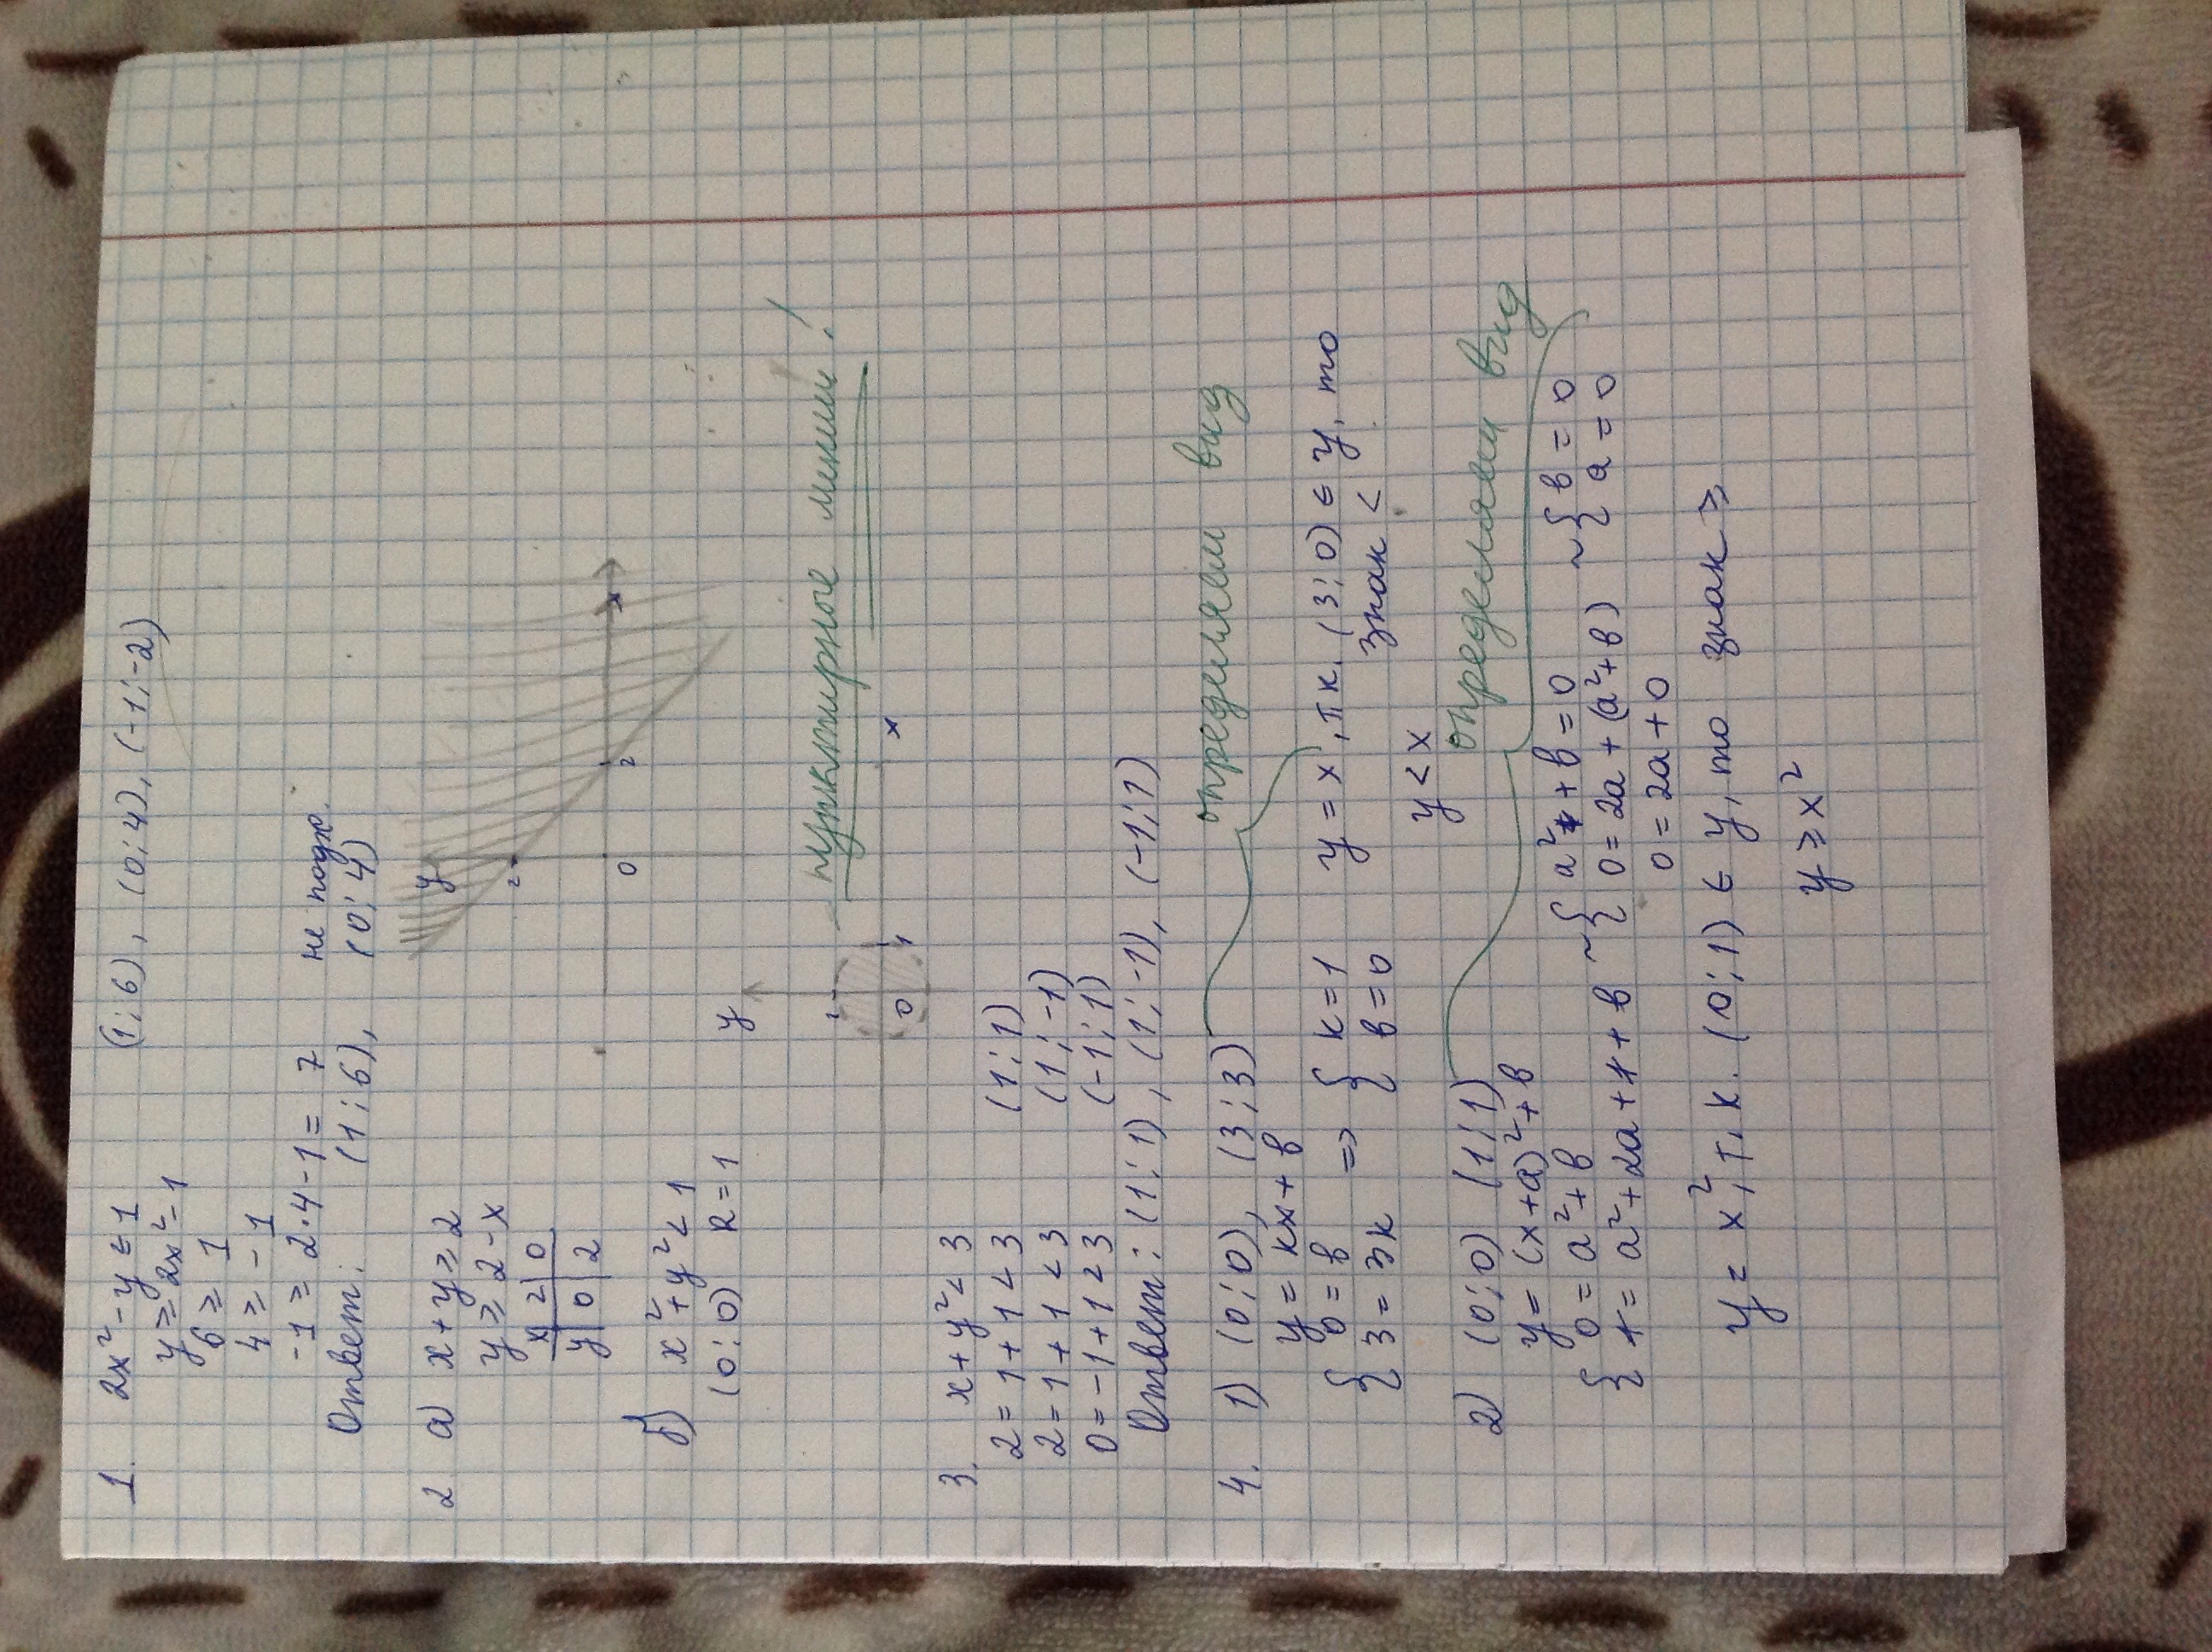 1. 2x² - y ≤ 1 (1; 6), (0; 4), (-1; -2)
y ≥ 2x² - 1
6 ≥ 1
4 ≥ -1
-1 ≥ 2·4-1 = 7 не подх.
Ответ: (1; 6), (0; 4)
2 а) x + y ≥ 2
y ≥ 2 - x
x | 2 | 0
y | 0 | 2
y
2
0 2 x
б) x² + y² < 1
(0; 0) R = 1
y
1
0 1 x
пунктирные линии!
3. x + y² < 3
2 = 1 + 1 < 3 (1; 1)
2 = 1 + 1 < 3 (1; -1)
0 = -1 + 1 < 3 (-1; 1)
Ответ: (1; 1), (1; -1), (-1; 1)
определяем вид
4. 1) (0; 0), (3; 3)
y = kx + b
{ 0 = b
3 = 3k => { k = 1
b = 0
y = x, т.к. (3; 0) ∈ y, то
знак <
y < x
определяем вид
2) (0; 0) (1; 1)
y = (x + a)² + b
{ 0 = a² + b
1 = a² + 2a + 1 + b ~ { a² + b = 0
0 = 2a + (a² + b) ~ { b = 0
a = 0
0 = 2a + 0
y = x², т.к. (0; 1) ∈ y, то знак ≥
y ≥ x²